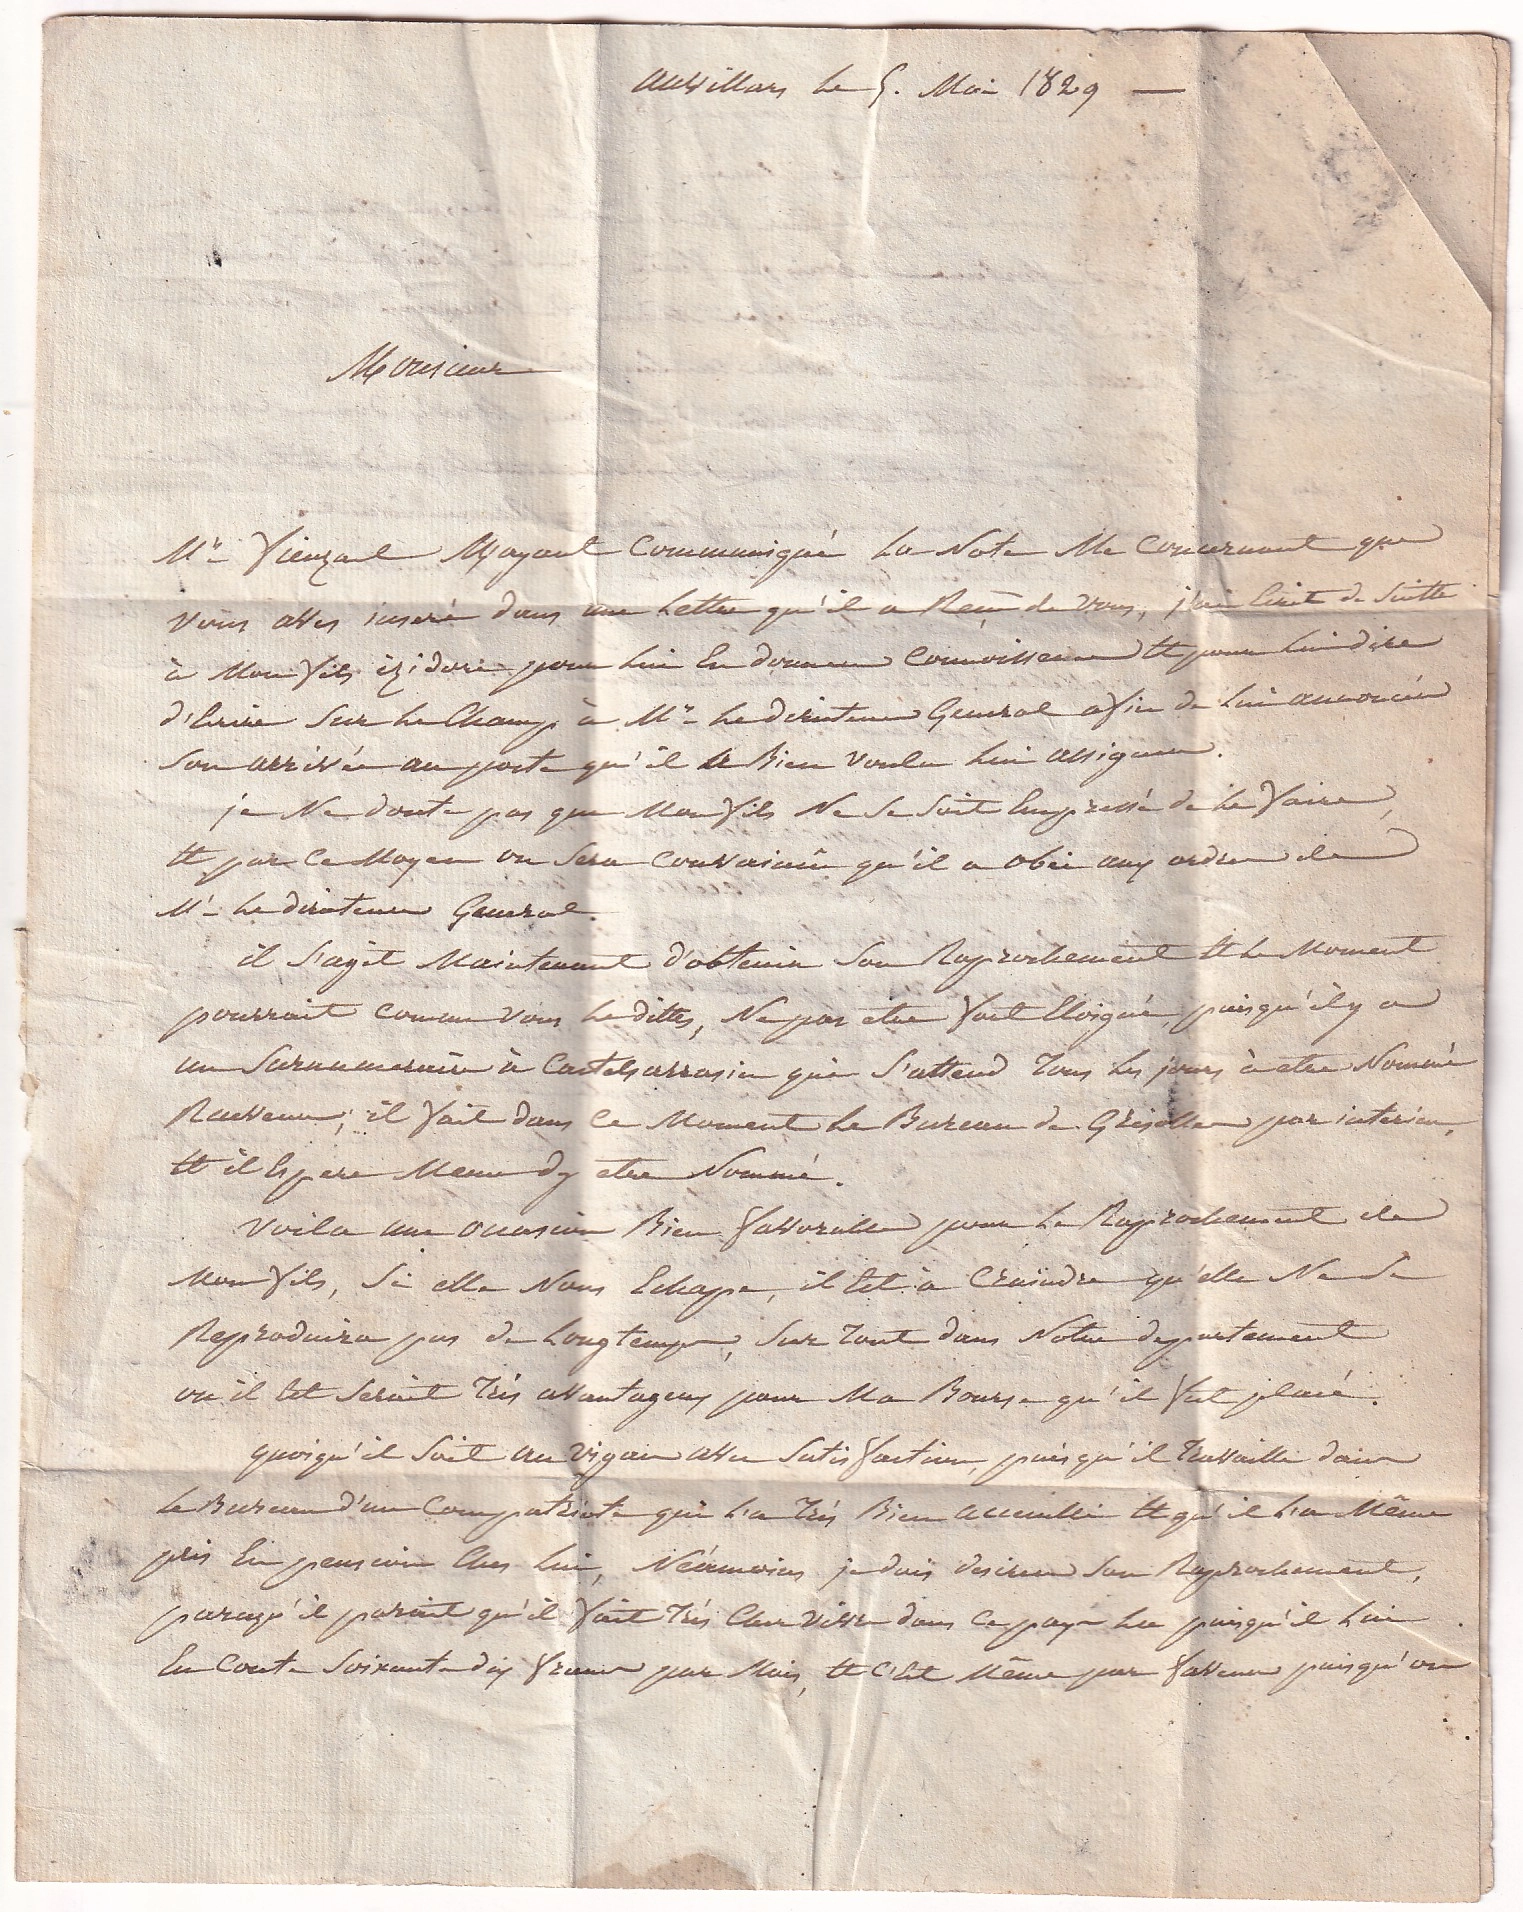 Auvillars le 5. Mai 1829 —
Monsieur
Mr. Vieuzal M'ayant Communiqué La Note Me Concernant que
vous aves inseré dans une Lettre qu'il a Reçu de vous, j'ai Ecrit de Suitte
à Mon fils izidore pour Lui En donner Connoissance Et pour Lui dire
d'Ecrire Sur Le Champ à Mr. Le directeur General afin de Lui annoncer
Son arrivée au poste qu'il a Bien voulu Lui assigner.
je Ne doute pas que Mon fils Ne Se Soit Empressé de Le faire,
Et par Ce Moyen on Sera Convaincu qu'il a obéi aux ordres de
Mr. Le directeur General.
il S'agit Maintenant d'obtenir Son Raprochement Et Le Moment
pourrait Comme vous Le dittes, Ne pas etre fort Eloigné, puisqu'il y a
un Surnumeraire à Castelsarrasin qui S'attend Tous Les jours à etre Nommé
Receveur; il fait dans Ce Moment Le Bureau de Grisolles par interim,
Et il Espere Meme d'y etre Nommé.
Voila une occasion Bien favorable pour Le Raprochement de
Mon fils, Si elle Nous Echape, il Est à Craindre qu'elle Ne Se
Reproduira pas de Longtemps, Sur Tout dans Notre departement
ou il Seroit Très avantageux pour Ma Bourse qu'il fut placé.
quoiqu'il Soit au Vigan avec Satisfaction, puisqu'il Travaille dans
Le Bureau d'un Compatriote qui L'a Très Bien accueilli Et qu'il L'a Même
pris En pension Chez Lui, Néanmoins je dois desirer Son Raprochement,
parcequ'il parait qu'il fait Très Cher vivre dans Ce pays La puisqu'il Lui
En Coute Soixante dix francs par Mois, Et C'Est Même par faveur puisqu'on